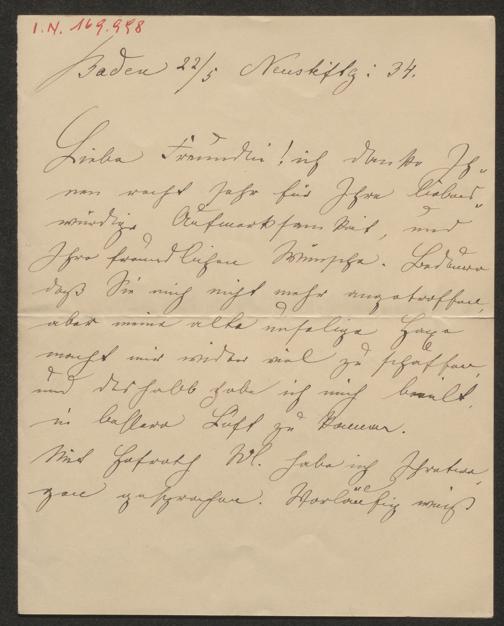 I.N. 169.998
Baden 22/5 Neustiftg: 34.
Liebe Freundin! ich danke Ih-
nen recht sehr für Ihre liebens-
würdige Aufmerksamkeit, und
Ihre freundlichen Wünsche. Bedaure
daß Sie mich nicht mehr angetroffen,
aber meine alte unselige
macht mir wieder viel zu schaffen,
und deshalb habe ich mich beeilt,
in bessere Luft zu kommen.
Mit Hofrath Wl. habe ich Ihretwe-
gen gesprochen. Vorläufig weiß